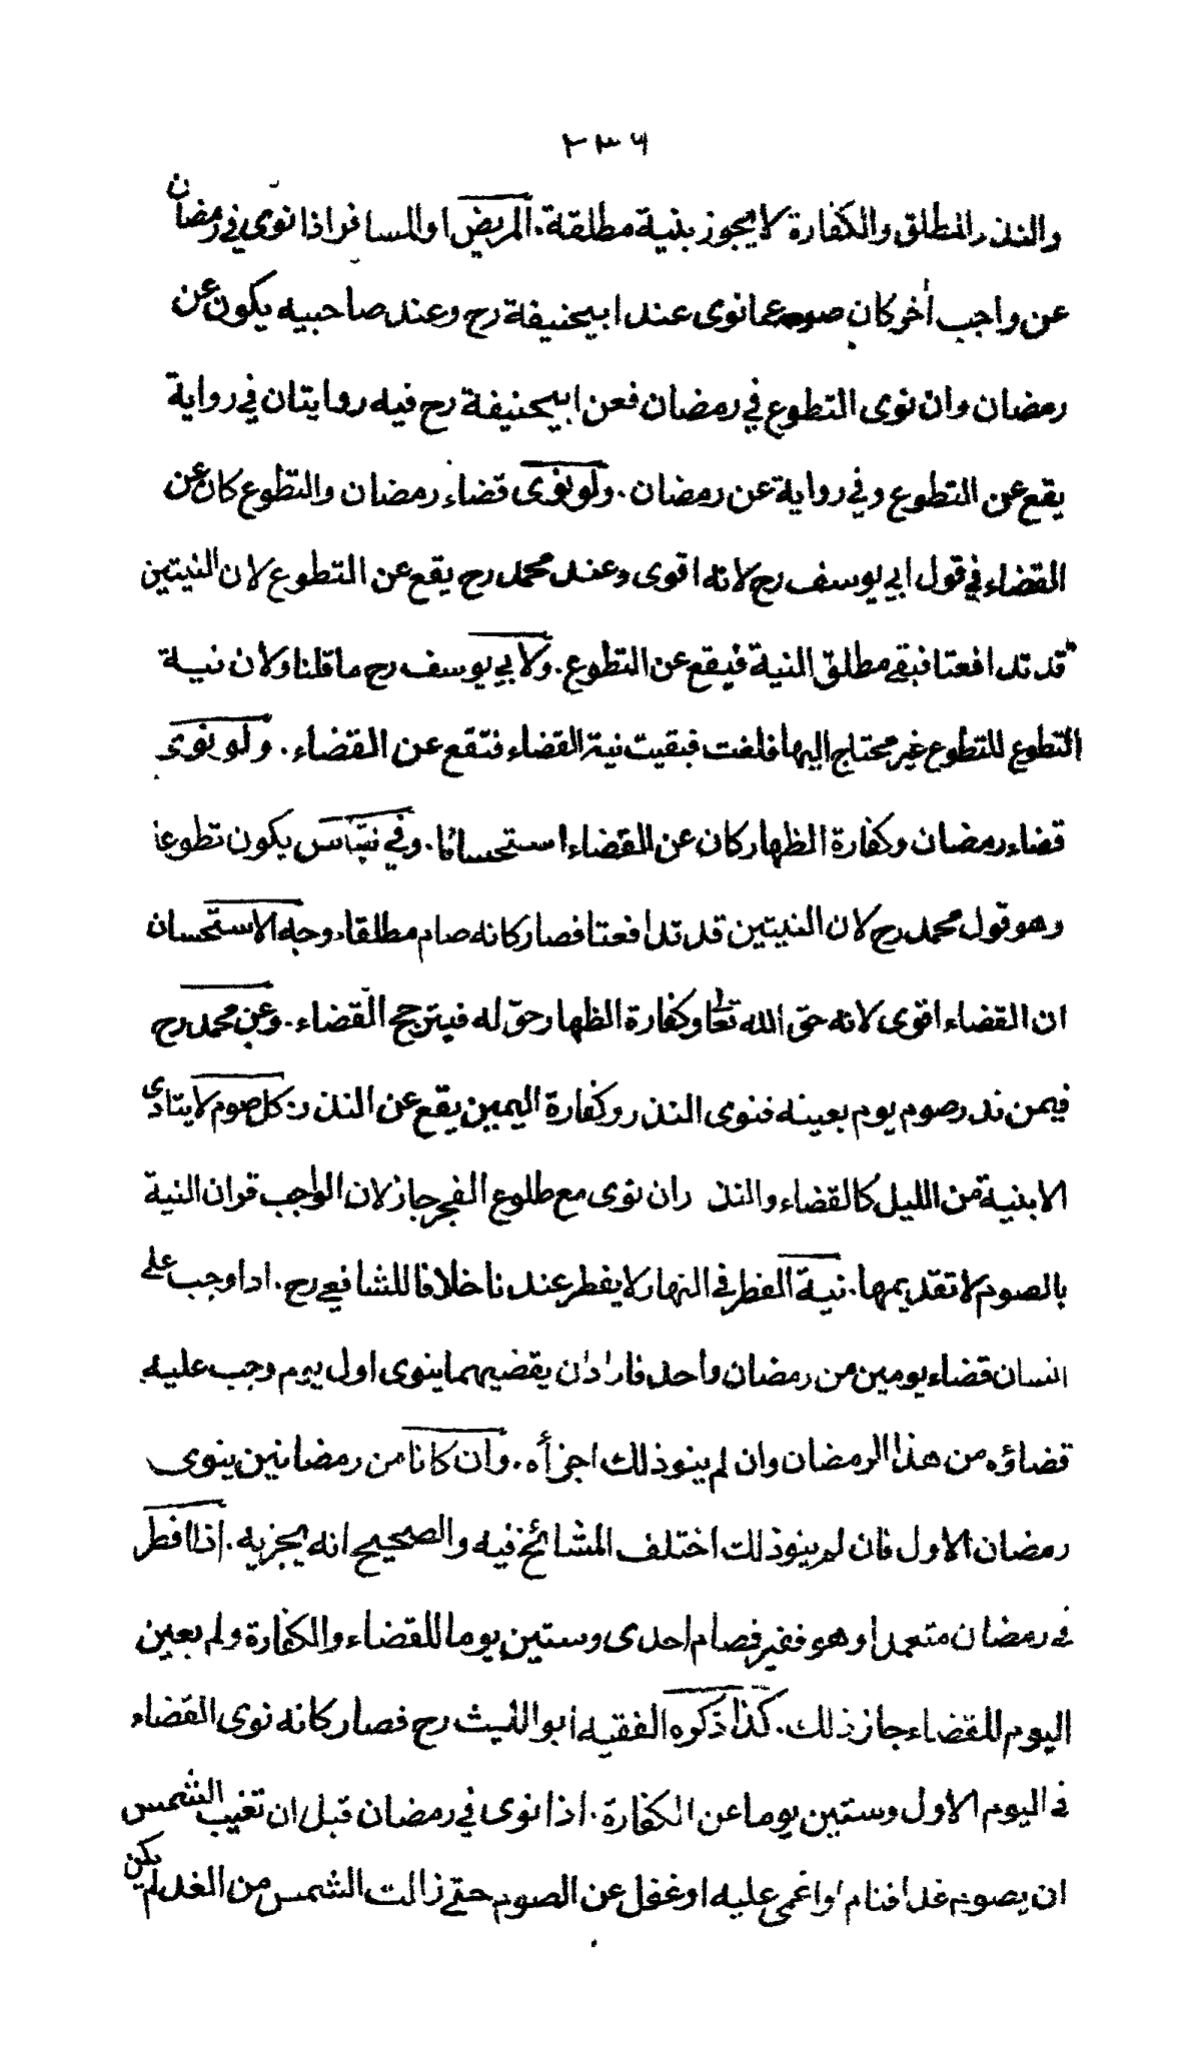 ٢٣٦
والنذر المطلق والكفارة لا يجوز بنية مطلقة. المريض او المسافر اذا نوى في رمضان
عن واجب أخر كان صومه عما نوى عند ابيحنيفة رح وعند صاحبيه يكون عن
رمضان وان نوى التطوع في رمضان فعن ابيحنيفة رح فيه روايتان في رواية
يقع عن التطوع وفي رواية عن رمضان. ولو نوى قضاء رمضان والتطوع كان عن
القضاء في قول ابي يوسف رح لانه اقوى وعند محمد رح يقع عن التطوع لان النيتين
قد تدافعتا فبقي مطلق النية فيقع عن التطوع. ولابي يوسف رح ما قلنا ولان نية
التطوع للتطوع غير محتاج اليها فلغت فبقيت نية القضاء فتقع عن القضاء. ولو نوى
قضاء رمضان وكفارة الظهار كان عن القضاء استحسانا. وفي قياس يكون تطوعا
وهو قول محمد رح لان النيتين قد تدافعتا فصار كانه صام مطلقا. وجه الاستحسان
ان القضاء اقوى لانه حق الله تعا وكفارة الظهار حق له فيترجح القضاء. وعن محمد رح
فيمن نذر صوم يوم بعينه فنوى النذر وكفارة اليمين يقع عن النذر. كل صوم لا يتادى
الا بنية من الليل كالقضاء والنذر ان نوى مع طلوع الفجر جاز لان الواجب قران النية
بالصوم لا تقديمها. نية الفطر في النهار لا يفطر عندنا خلافا للشافعي رح. اذا وجب على
انسان قضاء يومين من رمضان واحد فاراد ان يقضيهما ينوى اول يوم وجب عليه
قضاؤه من هذا الرمضان وان لم ينو ذلك اجزأه. وان كانا من رمضانين ينوى
رمضان الاول فان لم ينو ذلك اختلف المشائخ فيه والصحيح انه يجزيه. اذا افطر
في رمضان متعمدا وهو فقير فصام احدى وستين يوما للقضاء والكفارة ولم يعين
اليوم للقضاء جاز ذلك. كذا ذكره الفقيه ابو الليث رح فصار كانه نوى القضاء
في اليوم الاول وستين يوما عن الكفارة. اذا نوى في رمضان قبل ان تغيب الشمس
ان يصوم غدا فنام او اغمى عليه او غفل عن الصوم حتى زالت الشمس من الغد لم يكن